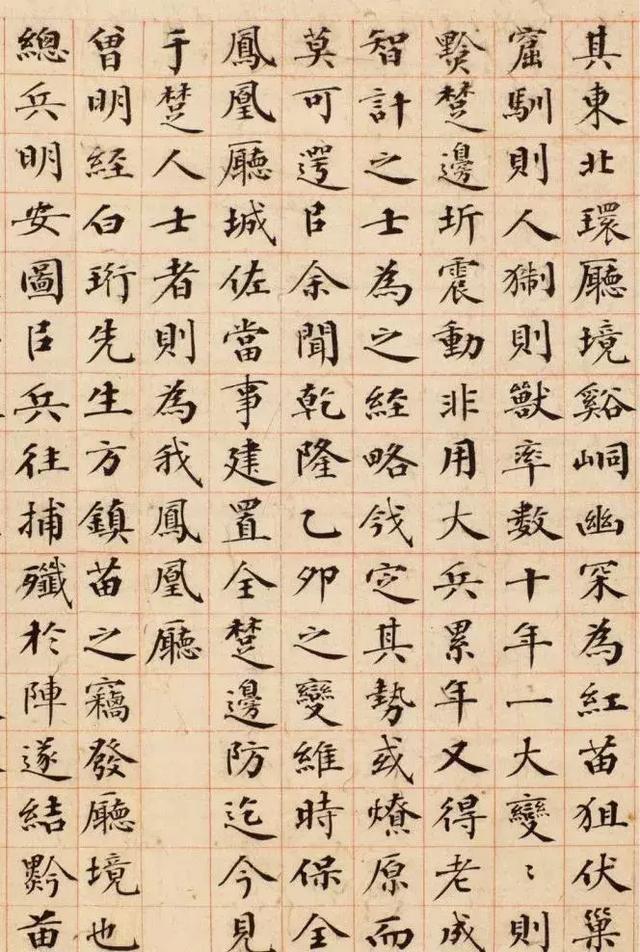 其東北環廳境谿峒幽深為紅苗狙伏巢
窟馴則人猘則獸率數十年一大變〻則
黔楚邊圻震動非用大兵累年又得老成
智計之士為之經略戡定其勢或燎原而
莫可遏臣余聞乾隆乙卯之變維時保全
鳳凰廳城佐當事建置全楚邊防迄今見
于楚人士者則為我鳳凰廳
曾明經白珩先生方鎮苗之竊發廳境也
總兵明安圖臣兵往捕殲於陣遂結黔苗